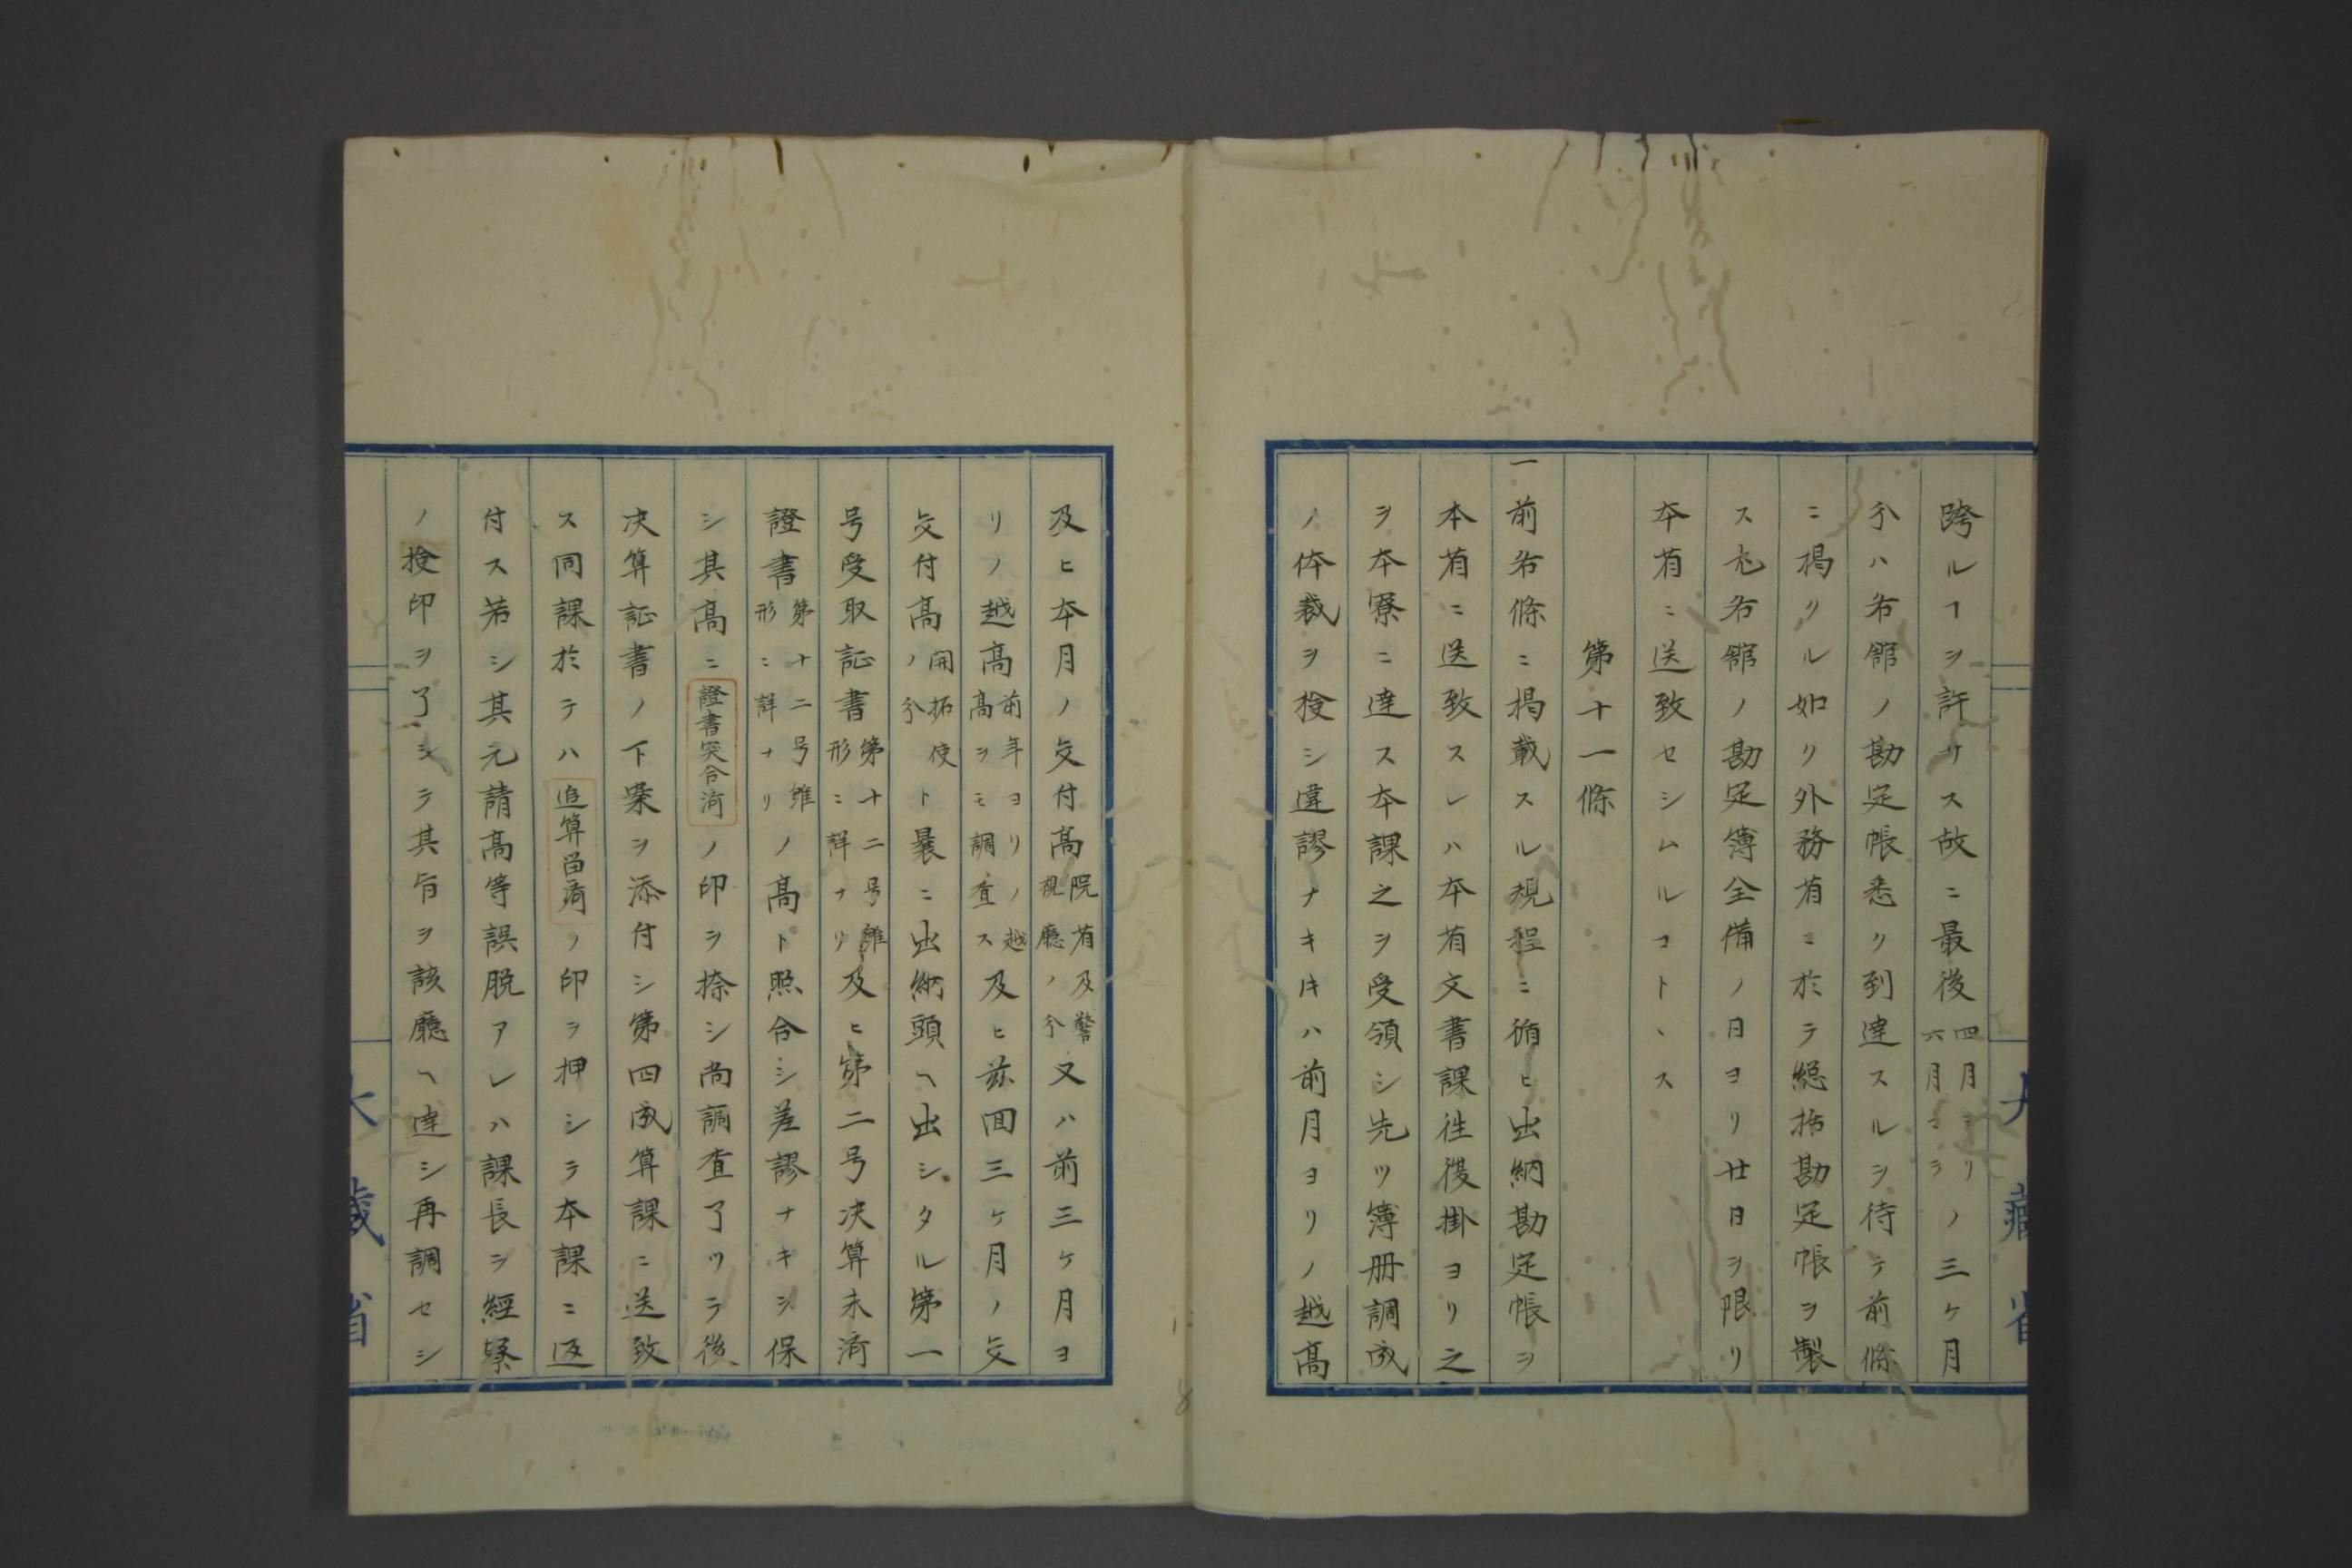 跨ルヿヲ許サス故ニ最後四月ヨリ六月マテノ三ケ月
分ハ各館ノ勘定帳悉ク到達スルヲ待テ前條
ニ掲クル如ク外務省ニ於テ総括勘定帳ヲ製
ス尤各館ノ勘定簿全備ノ日ヨリ廿日ヲ限リ
本省ニ送致セシムルコトヽス
第十一條
一前各條ニ掲載スル規程ニ循ヒ出納勘定帳ヲ
本省ニ送致スレハ本省文書課往復掛ヨリ之
ヲ本寮ニ達ス本課之ヲ受領シ先ツ簿册調成
ノ体裁ヲ検シ違謬ナキ𪜈ハ前月ヨリノ越高
及ヒ本月ノ交付高院省及警視廳ノ分又ハ前三ケ月ヨ
リノ越高前年ヨリノ越高ヲモ調査ス及ヒ茲回三ケ月ノ交
交付高ノ開拓使分ト曩ニ出納頭ヘ出シタル第一
号受取証書第十二号雛形ニ詳ナリ及ヒ第二号決算未済
證書第十二号雛形ニ詳ナリノ高ト照合シ差謬ナキヲ保
シ其高ニ證書突合済ノ印ヲ捺シ尚調査了ツテ後
決算証書ノ下案ヲ添付シ第四成算課ニ送致
ス同課於テハ追算留済ノ印ヲ押シテ本課ニ返
付ス若シ其元請高等誤脱アレハ課長ヲ經寮
ノ検印ヲ了シテ其旨ヲ該廳ヘ達シ再調セシ
大藏省
大藏省